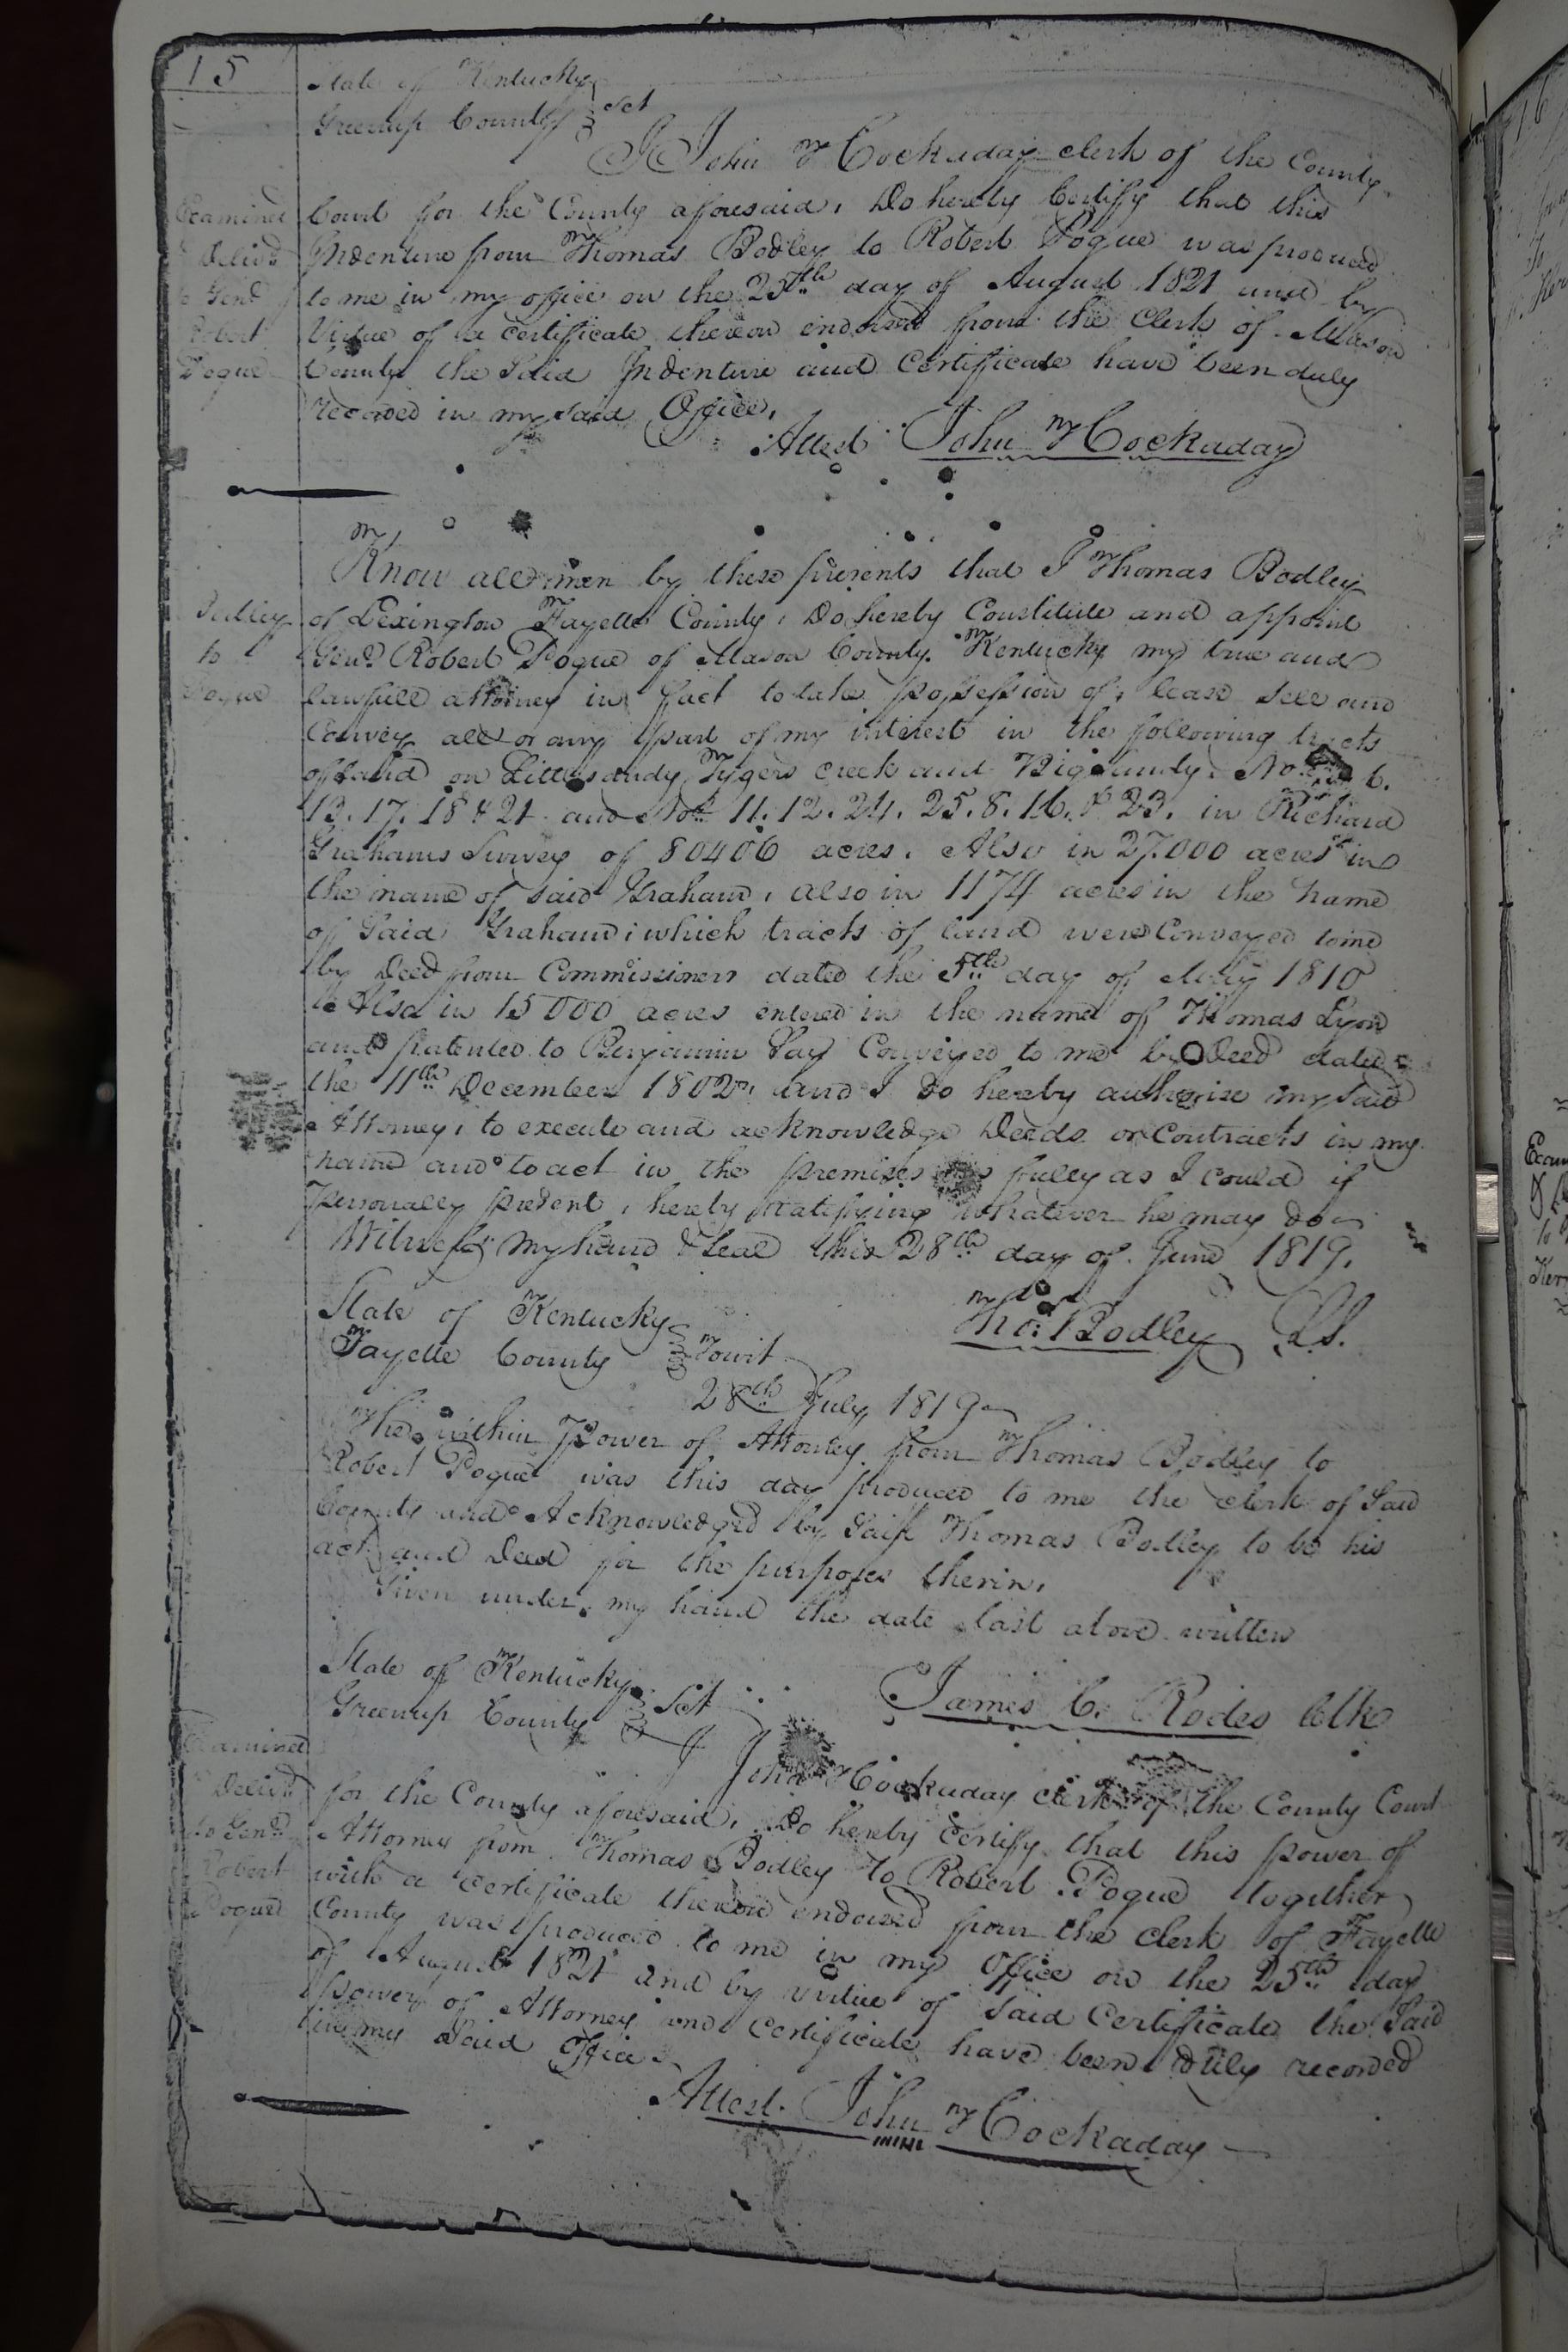 15
State of Kentucky
Greenup County } Sct
I John McCockaday clerk of the County
Court for the County aforesaid, Do hereby Certify that this
Indenture from Thomas Bodley to Robert Pogue was produced
to me in my office on the 25th day of August 1821 and by
Virtue of a certificate thereon endorsed from the Clerk of Mason
County the Said Indenture and Certificate have been duly
recorded in my Said Office,
Attest John McCockaday
Examined
Delivd
to Genl
Robert
Pogue
Know all men by these presents that I Thomas Bodley
of Lexington Fayette County, Do hereby Constitute and appoint
Genl Robert Pogue of Mason County Kentucky my true and
lawfull attorney in fact to take possession of, lease Sell and
Convey all or any part of my interest in the following tracts
of land on Little Sandy, Tygers creek and Big Sandy. No 6.
13. 17. 18 & 21 and Nos 11. 12. 24. 25. 8. 16. & 23. in Richard
Grahams Survey of 80406 acres. Also in 27.000 acres in
the name of said Graham, also in 1174 acres in the name
of Said Graham, which tracts of land were Conveyed to me
by Deed from Commissioners dated the 5th day of May 1810
Also in 15000 acres entered in the name of Thomas Lyon
and patented to Benjamin Say Conveyed to me by Deed dated
the 11th December 1802, and I Do hereby authorise my Said
Attorney, to execute and acknowledge Deeds or Contracts in my
name and to act in the premises as fully as I could if
personally present, hereby ratifying whatever he may do
Witness my hand & Seal this 28th day of June 1819.
Thos Bodley L.S.
Bodley
to
Pogue
State of Kentucky
Fayette County } Towit
28th July 1819
The within Power of Attorney from Thomas Bodley to
Robert Pogue was this day produced to me the clerk of Said
County and Acknowledged by Said Thomas Bodley to be his
act and Deed for the purposes therin,
Given under my hand the date last above written
James C. Rodes Clk
State of Kentucky
Greenup County } Sct
I John McCockaday clerk of the County Court
for the County aforesaid, Do hereby Certify that this power of
Attorney from Thomas Bodley to Robert Pogue together
with a Certificate thereon endorsed from the Clerk of Fayette
County was produced to me in my Office on the 25th day
of August 1821 and by virtue of Said Certificate the Said
power of Attorney and Certificate have been duly recorded
in my Said Office.
Attest. John McCockaday
Examined
Delivd
to Genl
Robert
Pogue